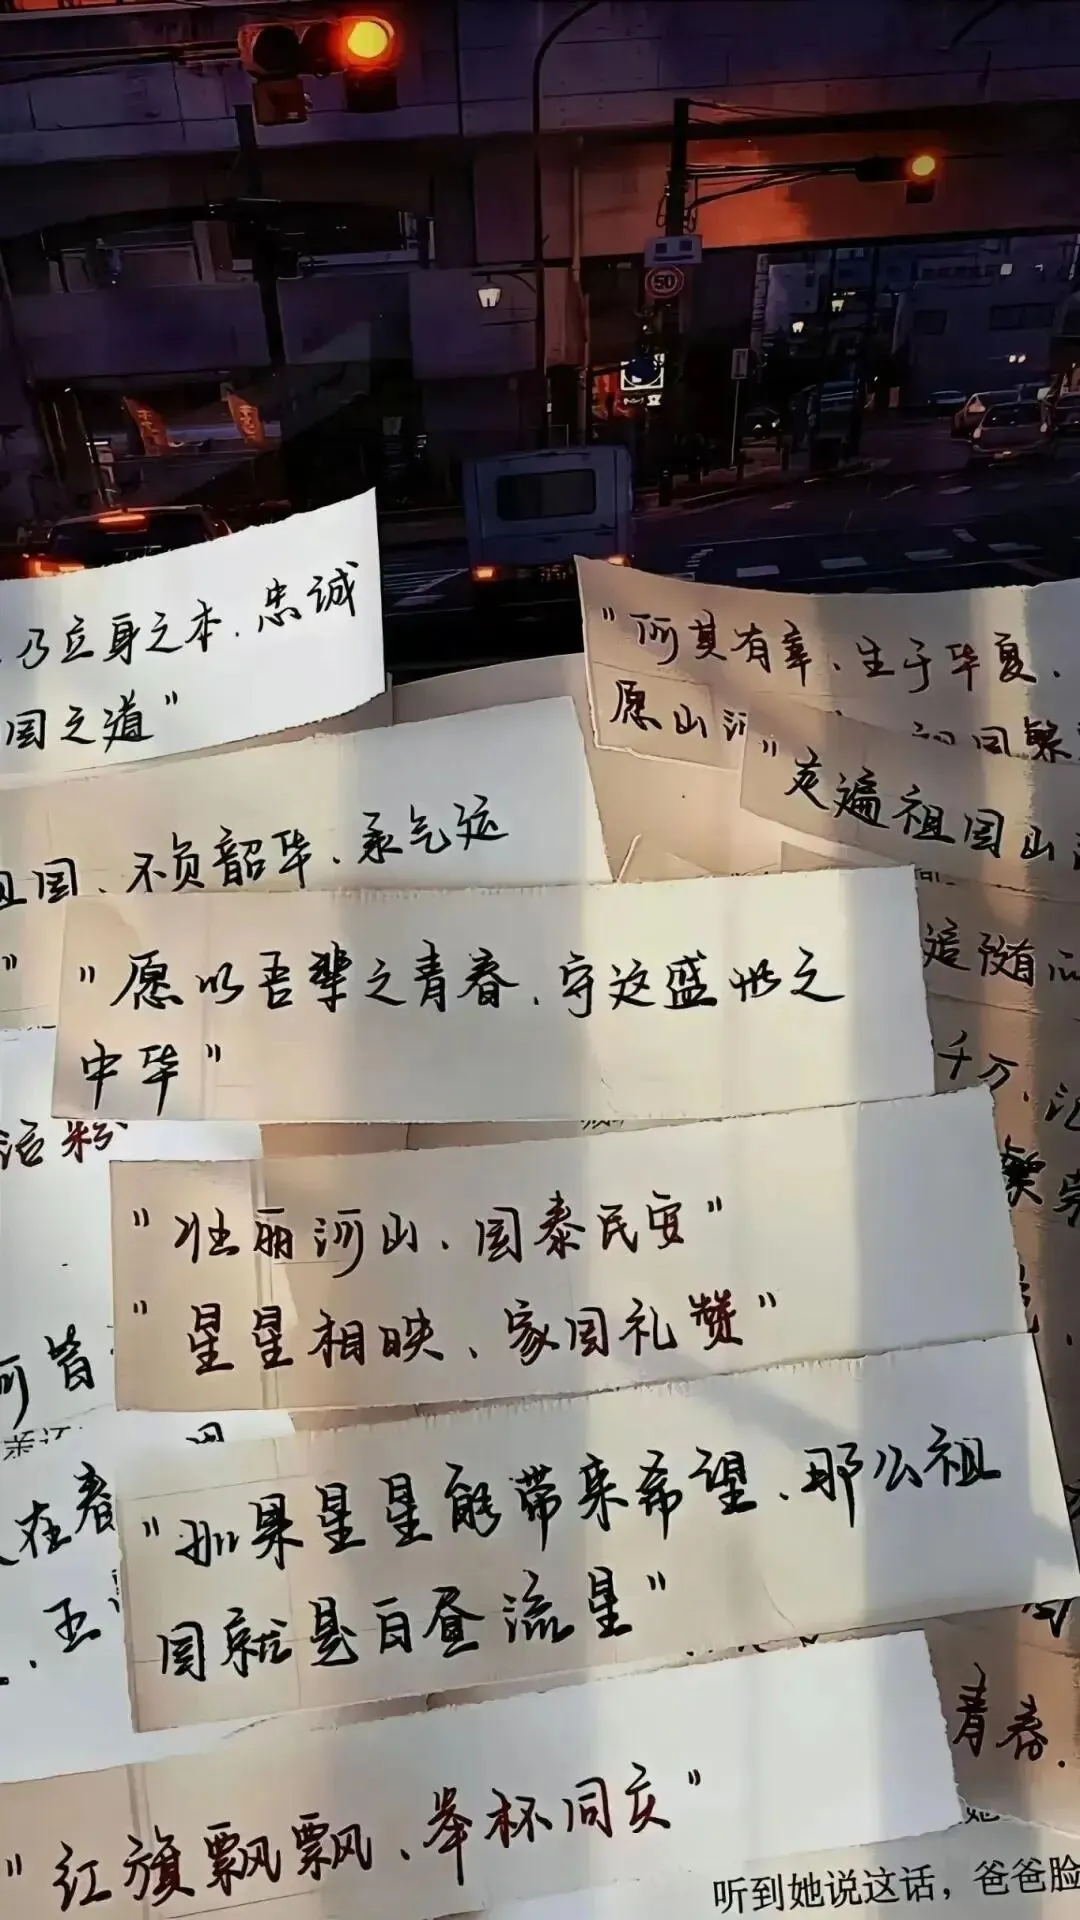 乃立身之本、忠诚
国之道"
"何其有幸、生于华夏、
愿山河
"走遍祖国山
祖国、不负韶华、承气运
"
追随
"愿以吾辈之青春、守这盛世之
中华"
千万、汇
活粉
繁荣
"壮丽河山、国泰民安"
"星星相映、家国礼赞"
河皆
在春
"如果星星能带来希望、那么祖
国就是白昼流星"
、五
青春、
"红旗飘飘、举杯同庆"
听到她说这话，爸爸脸
50